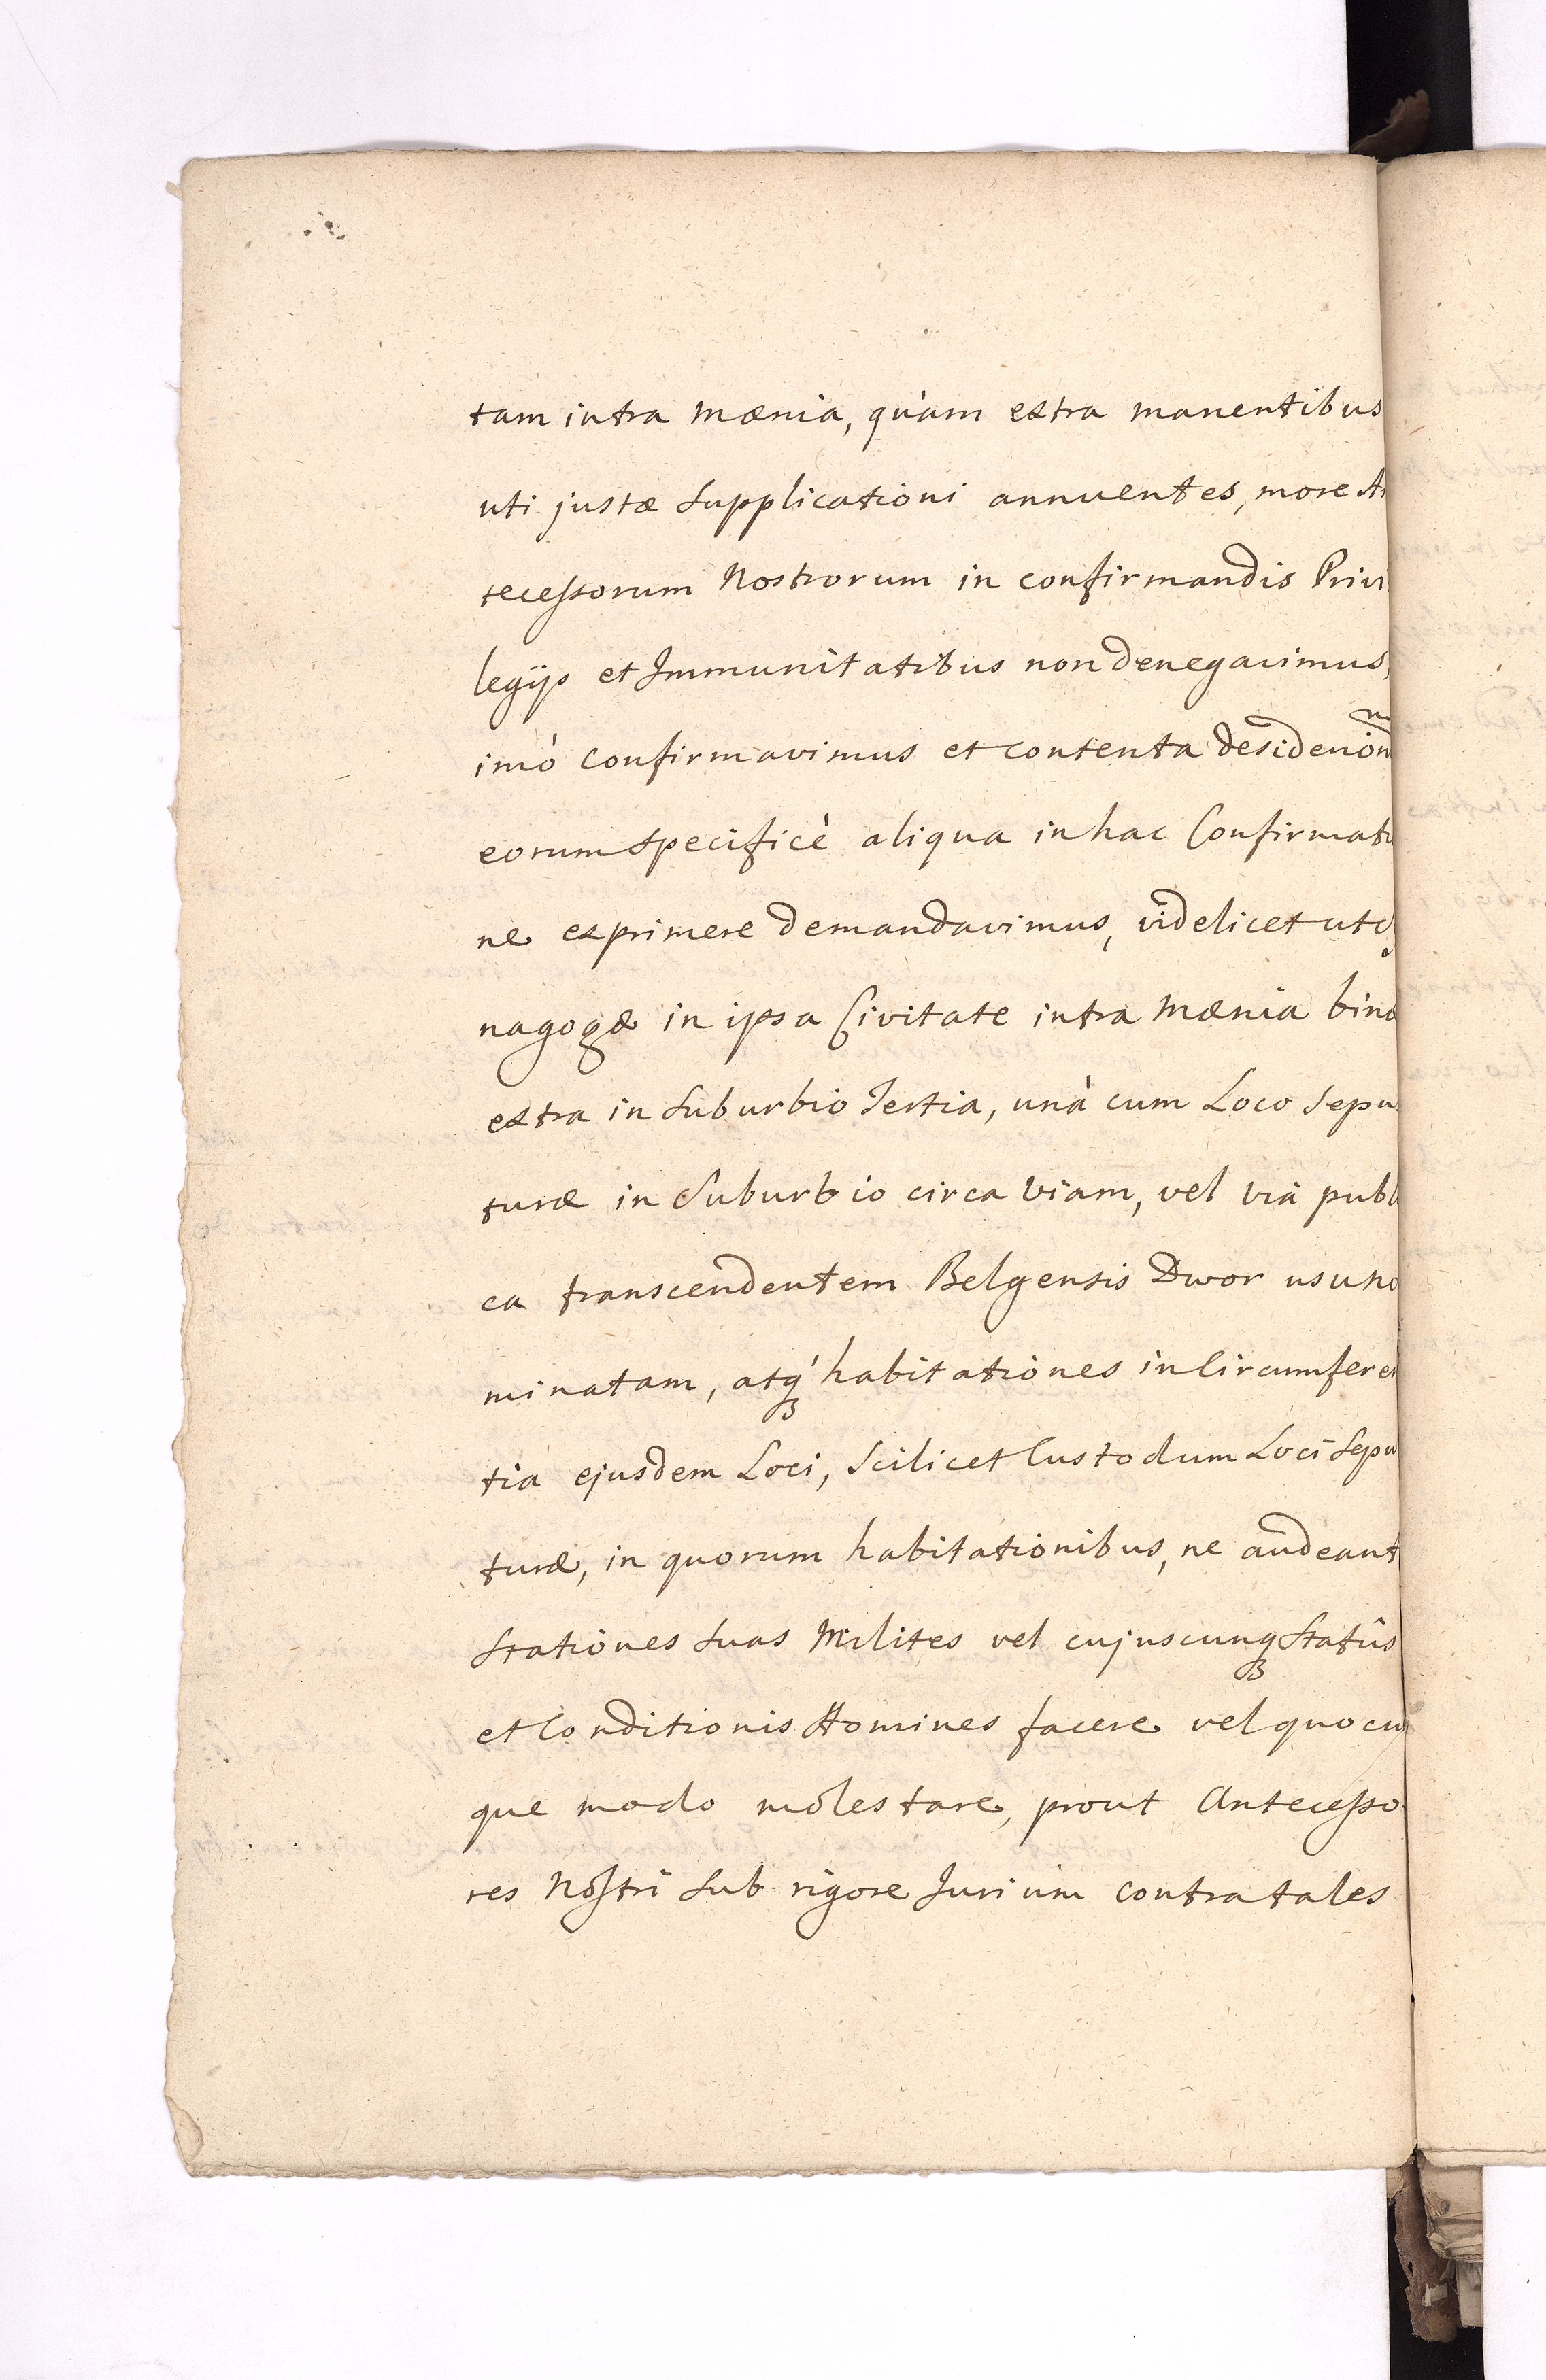 tam intra mænia, quàm extra manentibus
uti justæ supplicationi annuentes, more
tecessorum Nostrorum in confirmandis Privi
legijs et Immunitatibus non denegavimus,
imò confirmavimus et contenta
eorum specificè aliqua in hac Confirmatio
ne exprimere demandavimus, videlicet ut
nagogæ in ipsa Civitate intra mænia binæ
extra in suburbio Tertia, unà cum Loco Sepu
turæ in Suburbio circa viam, vel viâ publ
ca transcendentem Belgensis Dwor usu no
minatam, atq; habitationes in Circumferen
tia ejusdem Loci, scilicet Custodum Loci sepu
turæ, in quorum habitationibus, ne audeant
stationes suas Milites vel cujuscunq; statûs
et Conditionis Homines facere vel quocu
que modo molestare, prout Antecesso
res Nostri sub rigore Jurium contra tales